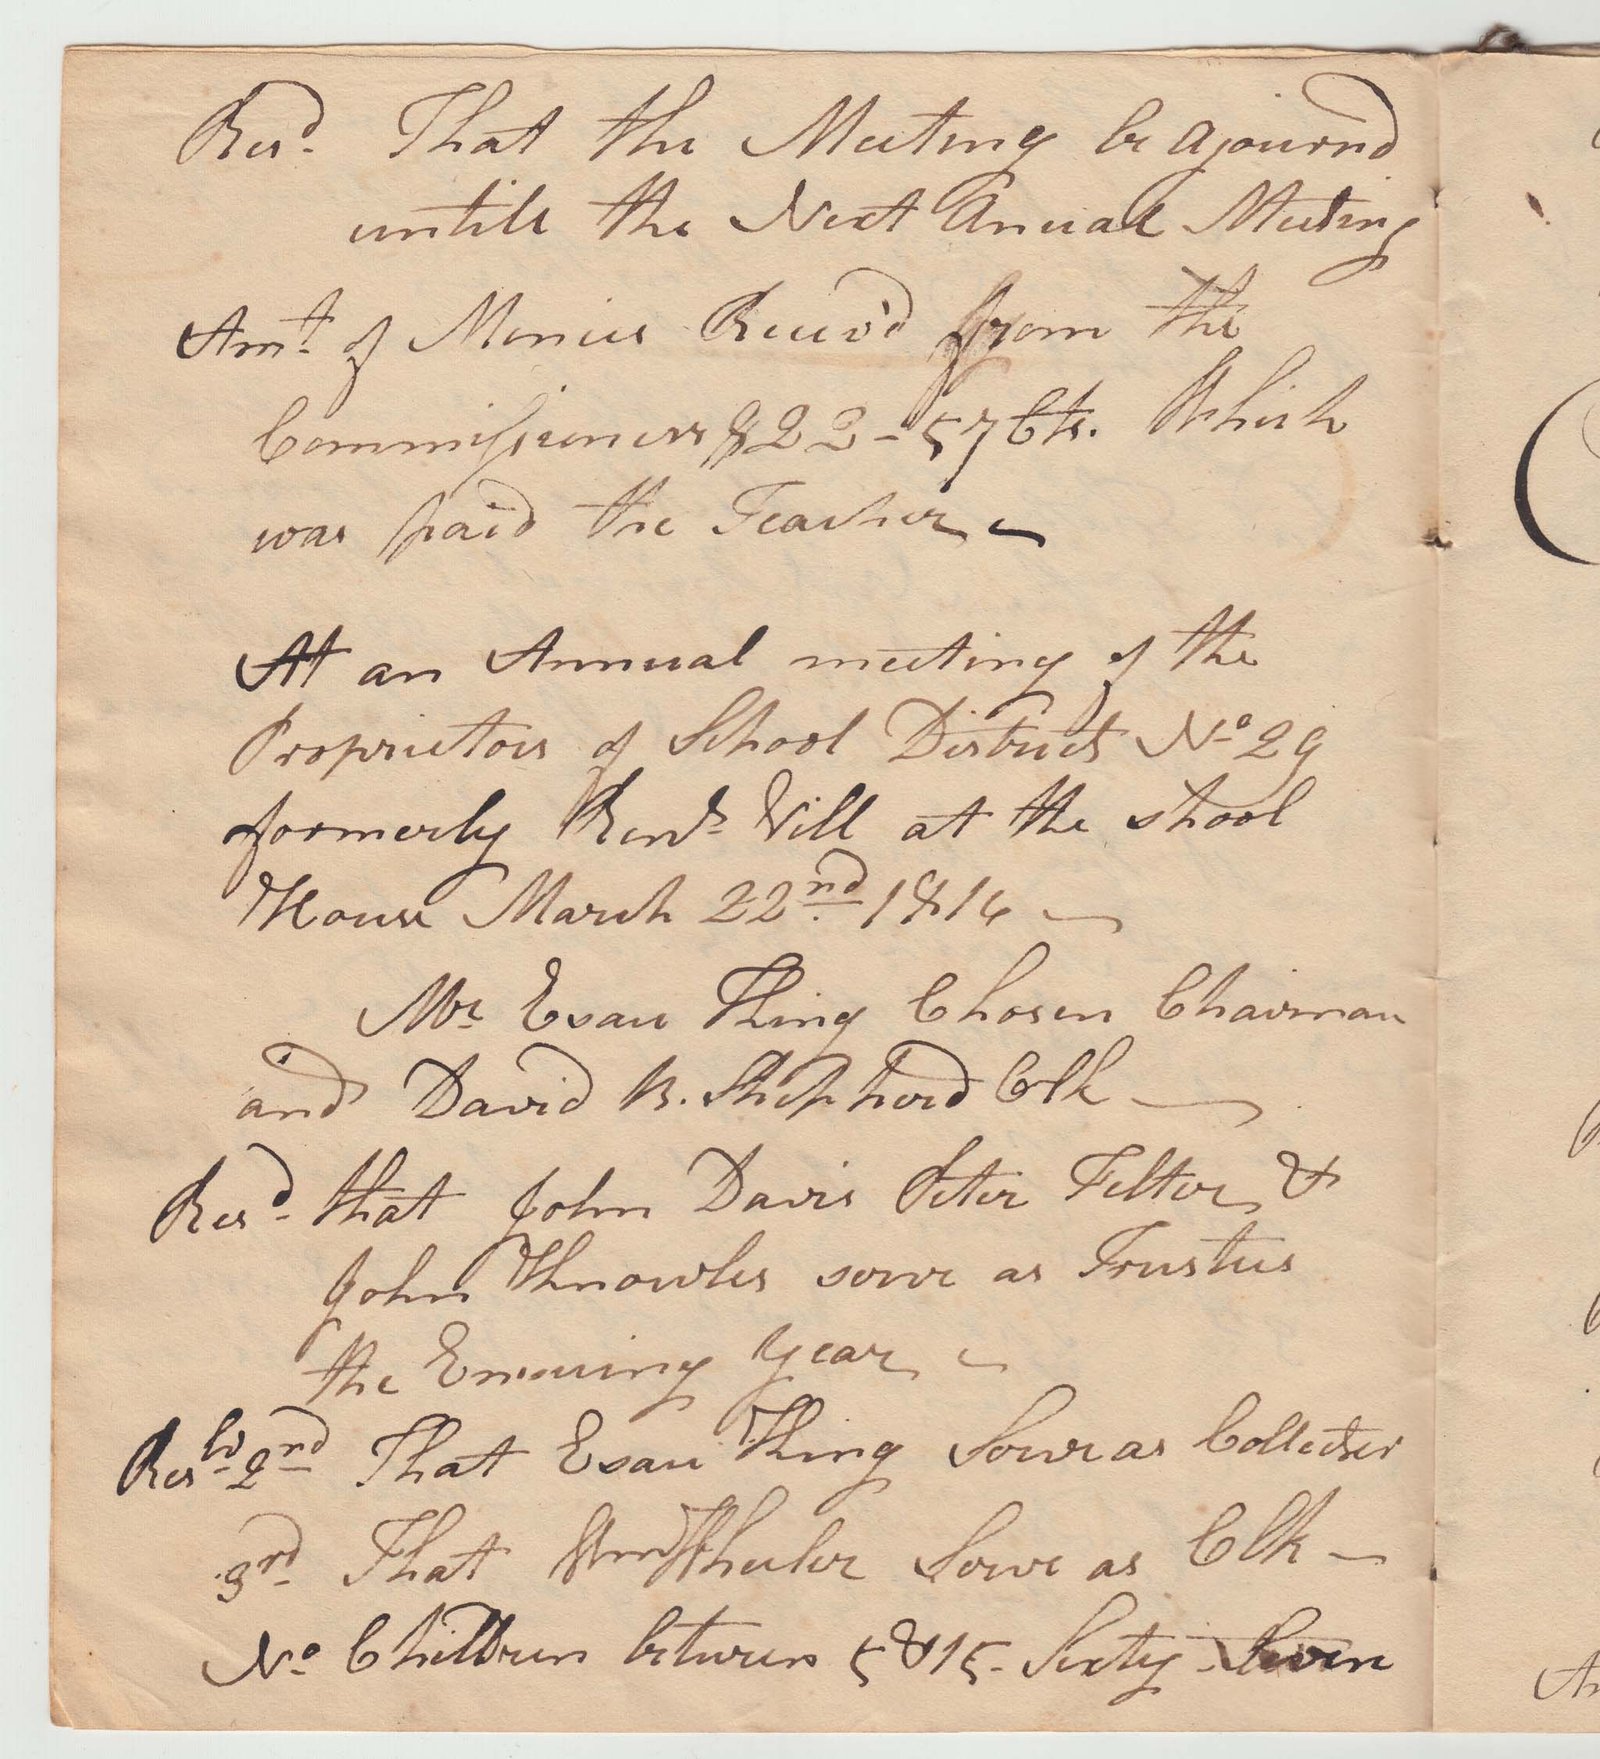 Resd. That the Meeting be ajournd
untill the Next Anual Meeting
Amt. of Monies Receiv'd from the
Commissioners $22-57 Cts. Which
was paid the Teacher
At an Annual meeting of the
Proprietors of School District No 29
formerly Vill at the shool
House March 22nd 1816
Mr Esau Thing Chosen Chairman
and David B. Shepherd Clk
Resd. that John Davis Peter Felter &
John Knowles serve as Trustees
the Ensuing Year
Reslvd 2nd That Esau Thing Serve as Collector
3rd That Wm Wheeler Serve as Clk
No Children between 5 & 15 - Sixty Seven